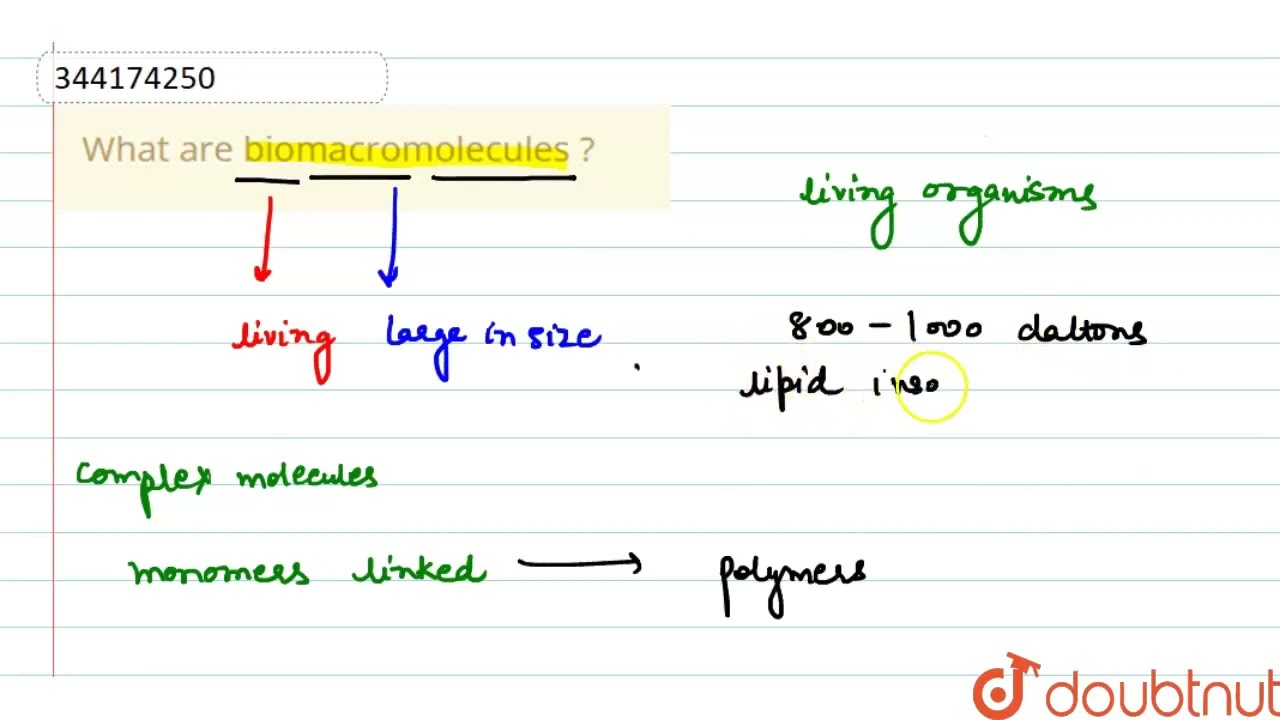 344174250
What are biomacromolecules ?
living organisms
living large in size .
800 - 1000 daltons
lipid inso
complex molecules
monomers linked → polymers
doubtnut